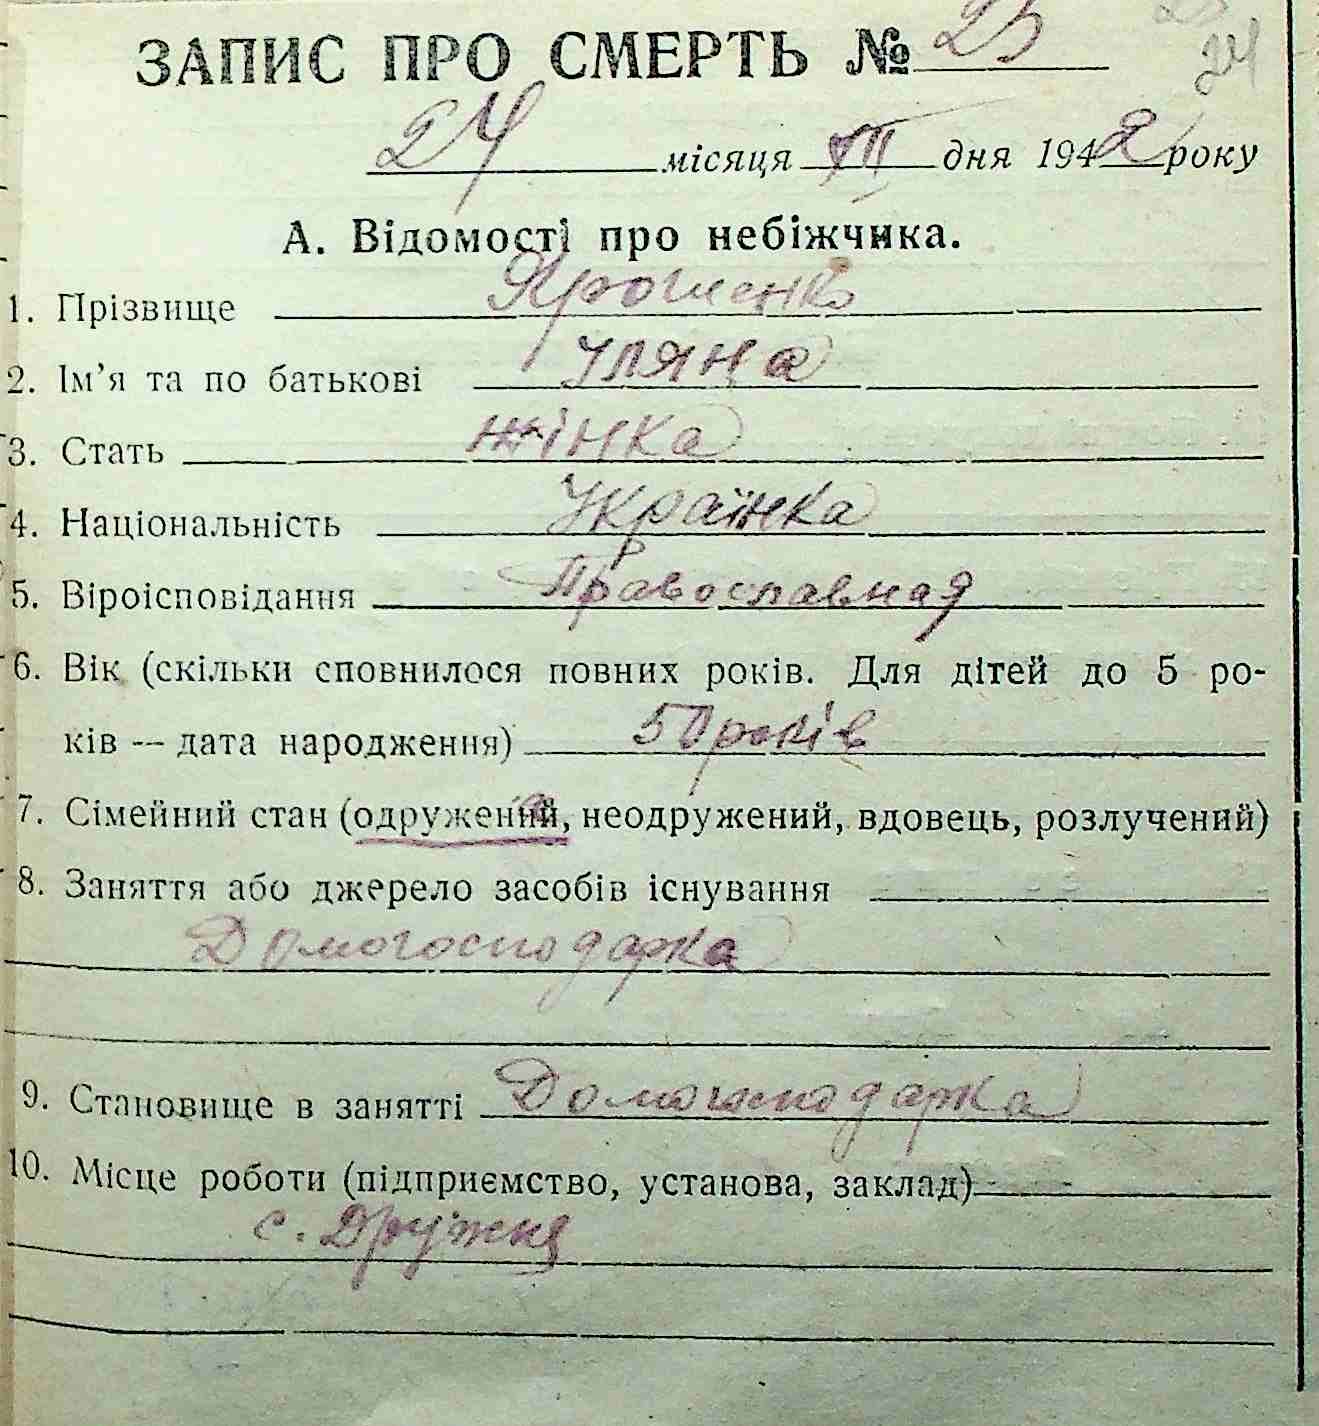 ЗАПИС ПРО СМЕРТЬ № 25
24
24 місяця VII дня 1942 року
А. Відомості про небіжчика.
1. Прізвище Ярошенко
2. Ім'я та по батькові Уляна
3. Стать жінка
4. Національність Українка
5. Віроісповідання Православная
6. Вік (скільки сповнилося повних років. Для дітей до 5 ро-
ків — дата народження) 50 років
7. Сімейний стан (одружений, неодружений, вдовець, розлучений)
8. Заняття або джерело засобів існування
Домогосподарка
9. Становище в занятті Домогосподарка
10. Місце роботи (підприємство, установа, заклад)
с. Дружня